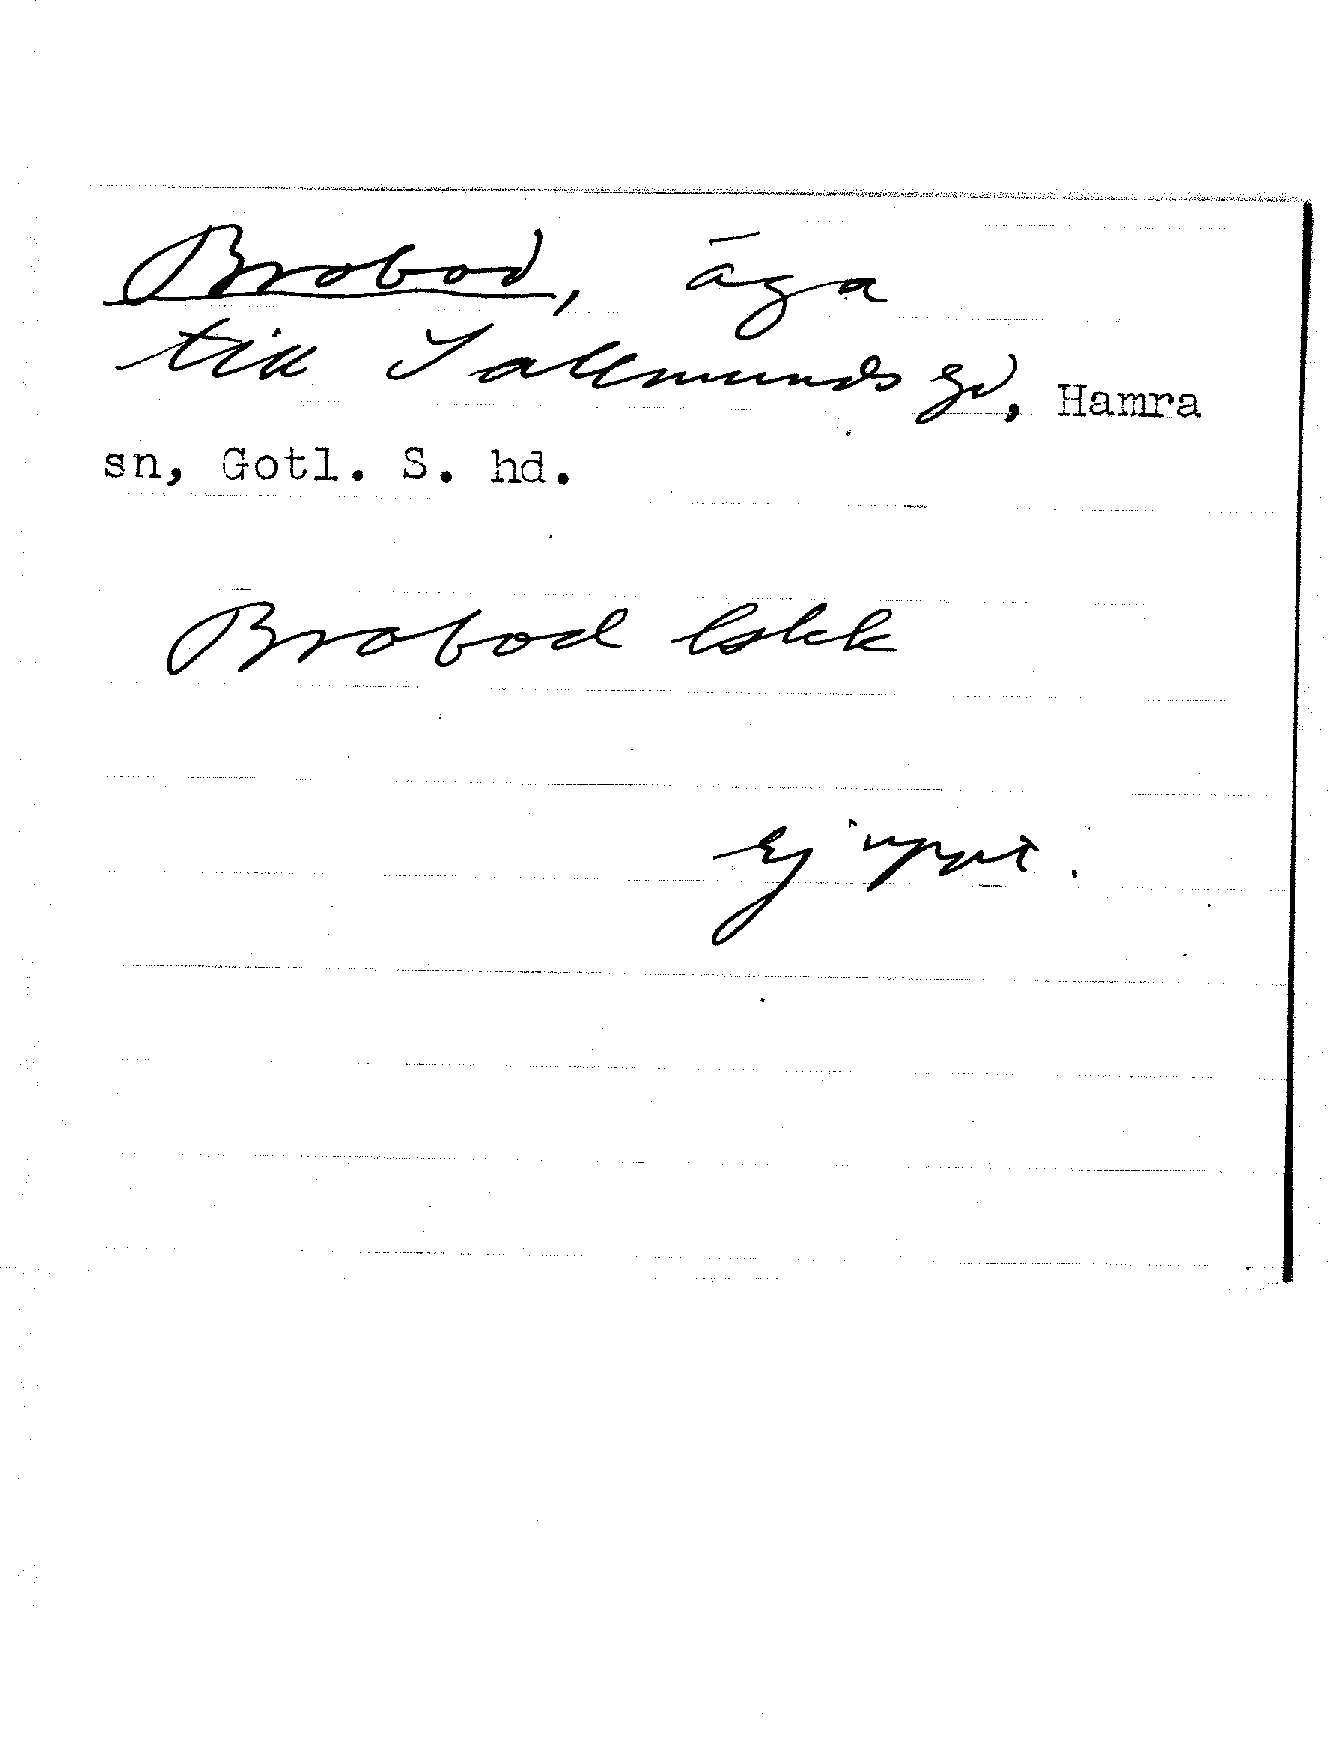 Brobod, äga
till Sallmunds gd, Hamra
sn, Gotl. S. hd.
Brobod lskk
Ej uppt.